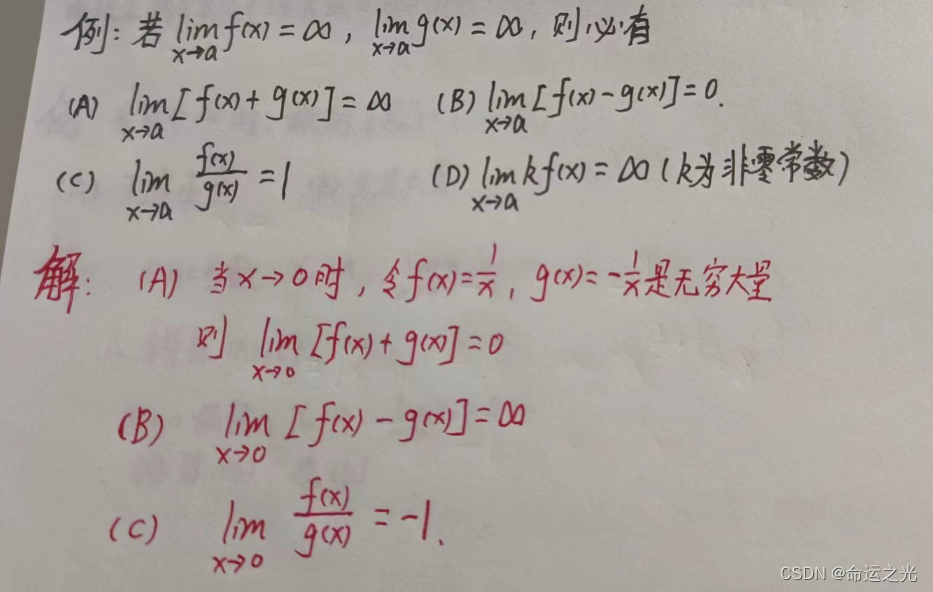 例: 若 lim x→a f(x) = ∞, lim x→a g(x) = ∞, 则必有
(A) lim x→a [f(x) + g(x)] = ∞ (B) lim x→a [f(x) - g(x)] = 0.
(C) lim x→a f(x)/g(x) = 1 (D) lim x→a kf(x) = ∞ (k为非零常数)
解: (A) 当x→0时, 令f(x)=1/x, g(x)=-1/x是无穷大量
则 lim x→0 [f(x) + g(x)] = 0
(B) lim x→0 [f(x) - g(x)] = ∞
(C) lim x→0 f(x)/g(x) = -1.
CSDN @命运之光